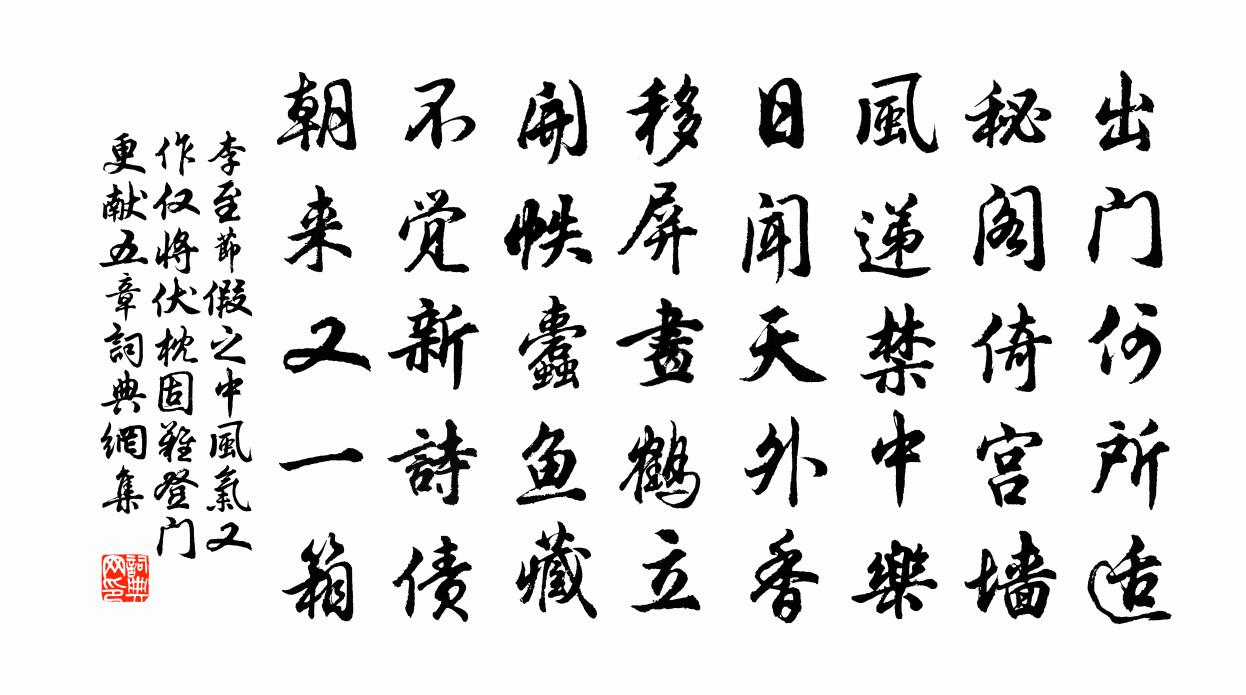 出门何所适
秘阁倚宫墙
風递禁中樂
日闻天外香
移屏畫鹤立
開帙蠹鱼藏
不觉新詩债
朝来又一箱
李至節假之中風氣又
作仅将伏枕固難登门
更献五章詞典網集
詞典
网印